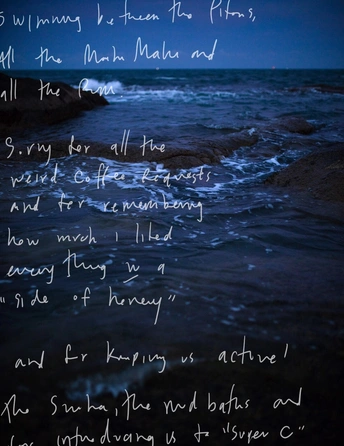 Swimming between the Pitons,
All the Mahi Mahi and
all the Rum
Sorry for all the
weird coffee requests
and for remembering
how much i liked
everything w a
"side of honey"
and for keeping us active!
The Samba, the mud baths and
for introducing us to "Super C"